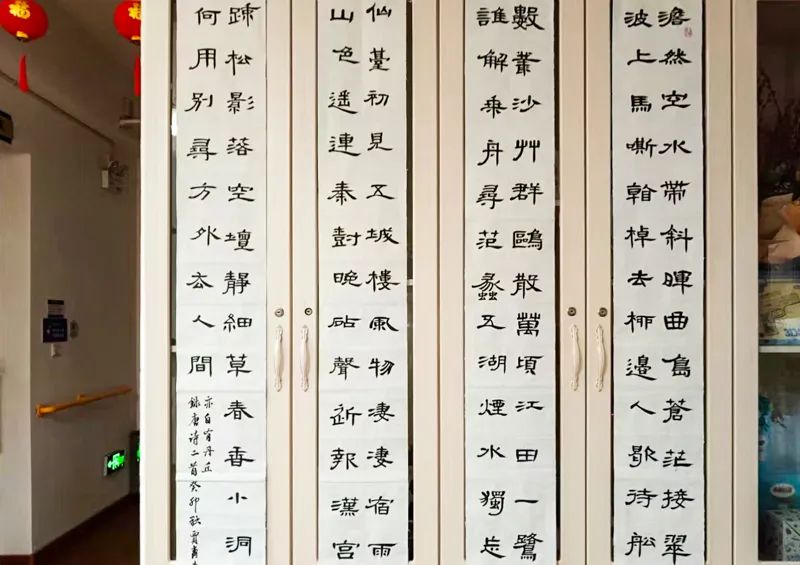 澹然空水帶斜暉曲島蒼茫接翠
波上馬嘶看棹去桺邊人歇待船
數叢沙艸群鷗散萬頃江田一鷺
誰解乘舟尋范蠡五湖煙水獨忘
仙臺初見五城樓風物淒淒宿雨
山色遙連秦樹晚砧聲近報漢宮
疎松影落空壇靜細草春香小洞
何用別尋方外去人間
亦自有丹丘
錄唐詩二首癸卯秋賈
福
福